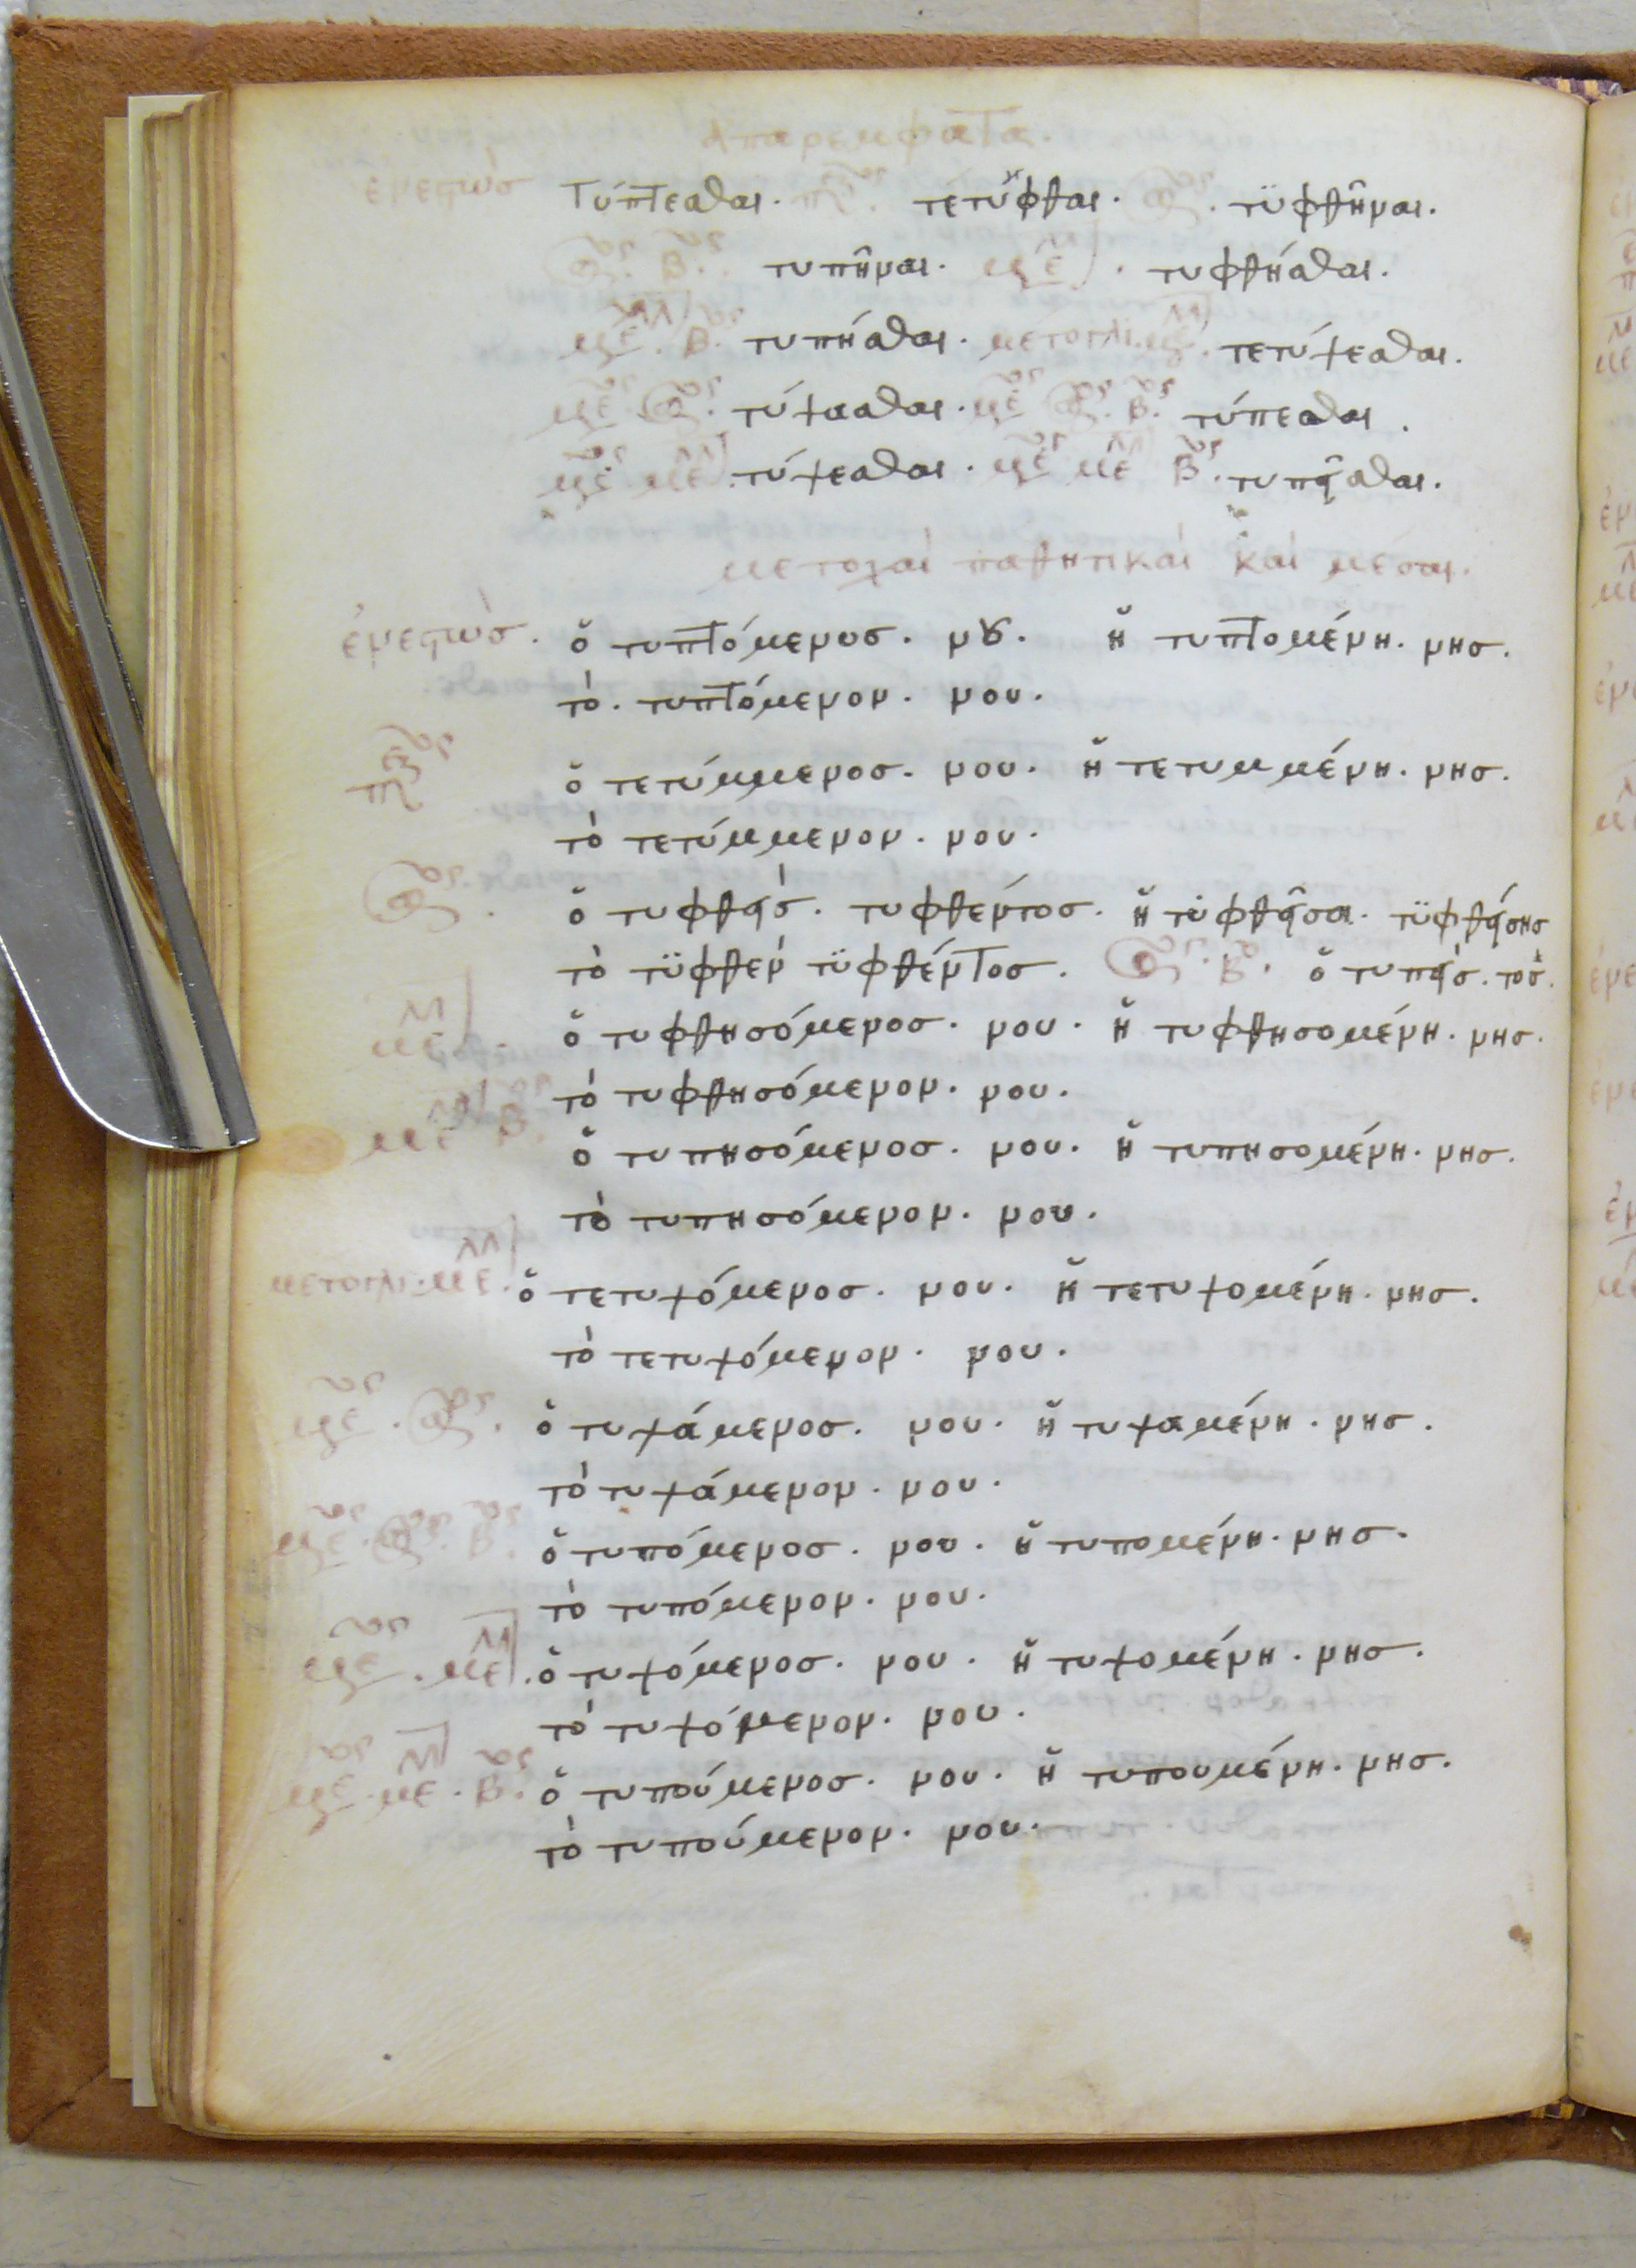 Ἀπαρέμφατα.
ἐνεστὼς τύπτεσθαι. τετύφθαι. τϋφθῆναι.
β. τυπῆναι. τυφθήσεσθαι.
β. τυπήσεσθαι. μετολι. τετύψεσθαι.
τύψασθαι. β. τύπεσθαι.
τύψεσθαι. β. τυπεῖσθαι.
μετοχαὶ παθητικαὶ καὶ μέσαι.
ἐνεστὼς. ὁ τυπτόμενος. νου. ἡ τυπτομένη. νης.
τὸ. τυπτόμενον. νου.
ὁ τετύμμενος. νου. ἡ τετυμμένη. νης.
τὸ τετύμμενον. νου.
ὁ τυφθείς. τυφθέντος. ἡ τυφθεῖσα. τϋφθείσης
τὸ τϋφθὲν τϋφθέντος. β. ὁ τυπείς. τος.
ὁ τυφθησόμενος. νου. ἡ τυφθησομένη. νης.
τὸ τυφθησόμενον. νου.
β. ὁ τυπησόμενος. νου. ἡ τυπησομένη. νης.
τὸ τυπησόμενον. νου.
ὁ τετυψόμενος. νου. ἡ τετυψομένη. νης.
τὸ τετυψόμενον. νου.
ὁ τυψάμενος. νου. ἡ τυψαμένη. νης.
τὸ τυψάμενον. νου.
β. ὁ τυπόμενος. νου. ἡ τυπομένη. νης.
τὸ τυπόμενον. νου.
ὁ τυψόμενος. νου. ἡ τυψομένη. νης.
τὸ τυψόμενον. νου.
β. ὁ τυπούμενος. νου. ἡ τυπουμένη. νης.
τὸ τυπούμενον. νου.